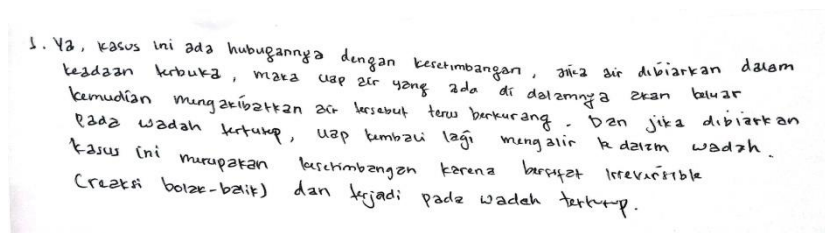 1. Ya, kasus ini ada hubugannya dengan kesetimbangan, jika air dibiarkan dalam
keadaan terbuka, maka uap air yang ada di dalamnya akan keluar
kemudian mengakibatkan air tersebut terus berkurang. Dan jika dibiarkan
pada wadah tertutup, uap kembali lagi mengalir ke dalam wadah.
Kasus ini merupakan kesetimbangan karena bersifat Irreversible
(reaksi bolak-balik) dan terjadi pada wadah tertutup.